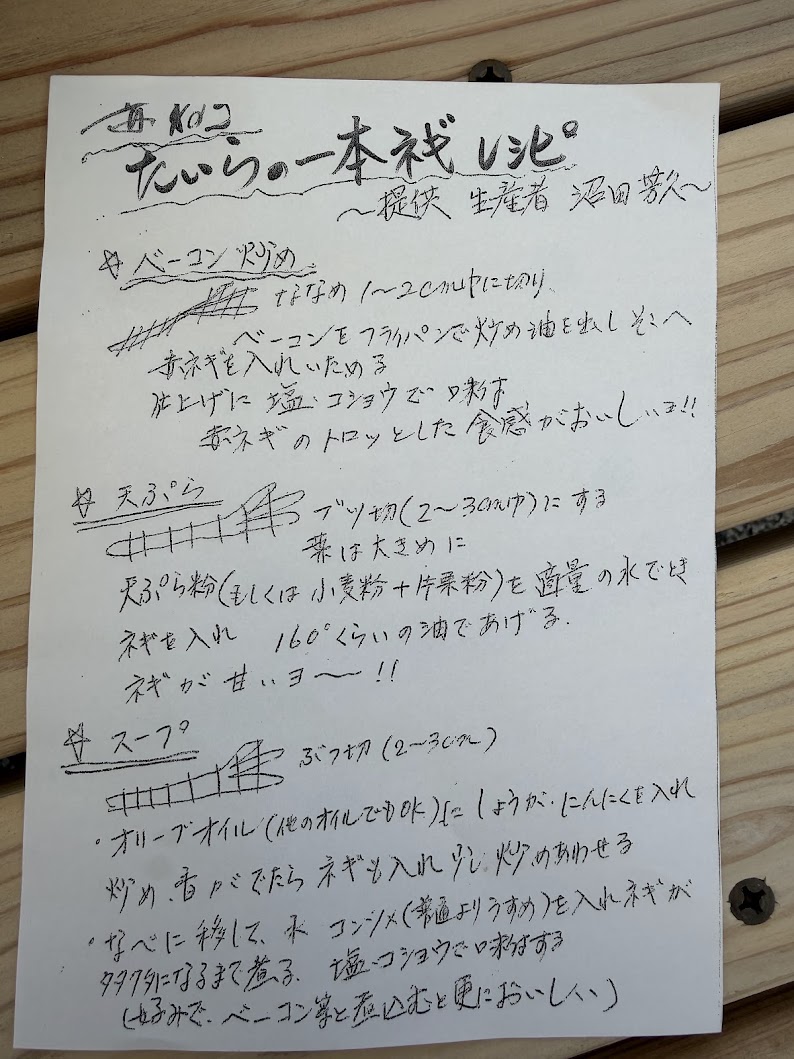 赤 No2
たいらの一本ネギ レシピ
～提供 生産者 沼田 芳久～
☆ ベーコン炒め
ななめ 1～2cm巾に切り
ベーコンをフライパンで炒め油を出しそこへ
赤ネギを入れいためる
仕上げに 塩・コショウで味付
赤ネギのトロッとした食感がおいしいヨ!!
☆ 天ぷら
ブツ切(2～3cm巾)にする
葉は大きめに
天ぷら粉(もしくは小麦粉+片栗粉)を適量の水でとき
ネギを入れ 160°くらいの油であげる.
ネギが甘いヨ～!!
☆ スープ
ぶつ切(2～3cm)
・オリーブオイル(他のオイルでもOK)にしょうが・にんにくを入れ
炒め、香がでたらネギも入れ少し炒めあわせる
・なべに移して、水 コンソメ(普通よりうすめ)を入れネギが
クタクタになるまで煮る、塩・コショウで味付する
(好みで、ベーコン等と煮込むと更においしい)